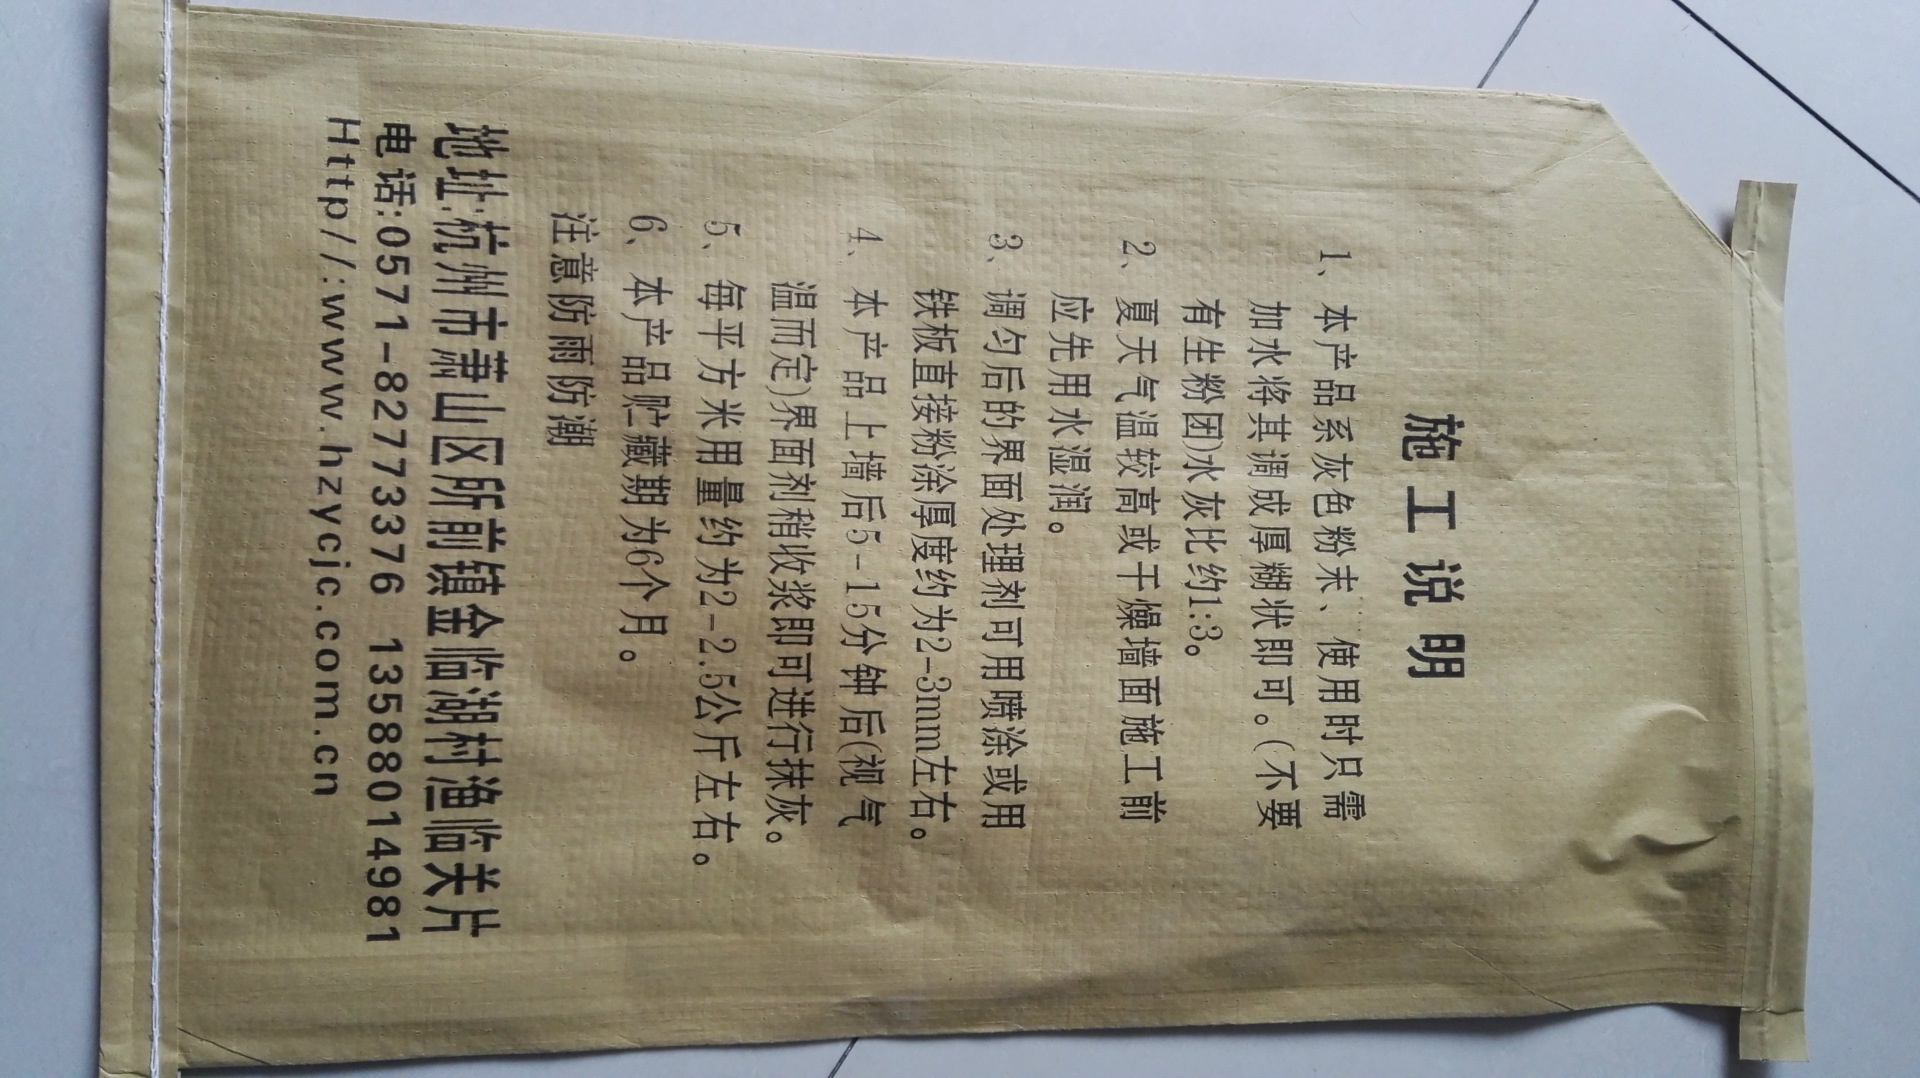 施工说明
1、本产品系灰色粉末、使用时只需
加水将其调成厚糊状即可。(不要
有生粉团)水灰比约1:3。
2、夏天气温较高或干燥墙面施工前
应先用水湿润。
3、调匀后的界面处理剂可用喷涂或用
铁板直接粉涂厚度约为2-3mm左右。
4、本产品上墙后5-15分钟后(视气
温而定)界面剂稍收浆即可进行抹灰。
5、每平方米用量约为2-2.5公斤左右。
6、本产品贮藏期为6个月。
注意防雨防潮
地址:杭州市萧山区所前镇金临湖村渔临关片
电话:0571-82773376 13588014981
Http//:www.hzycjc.com.cn